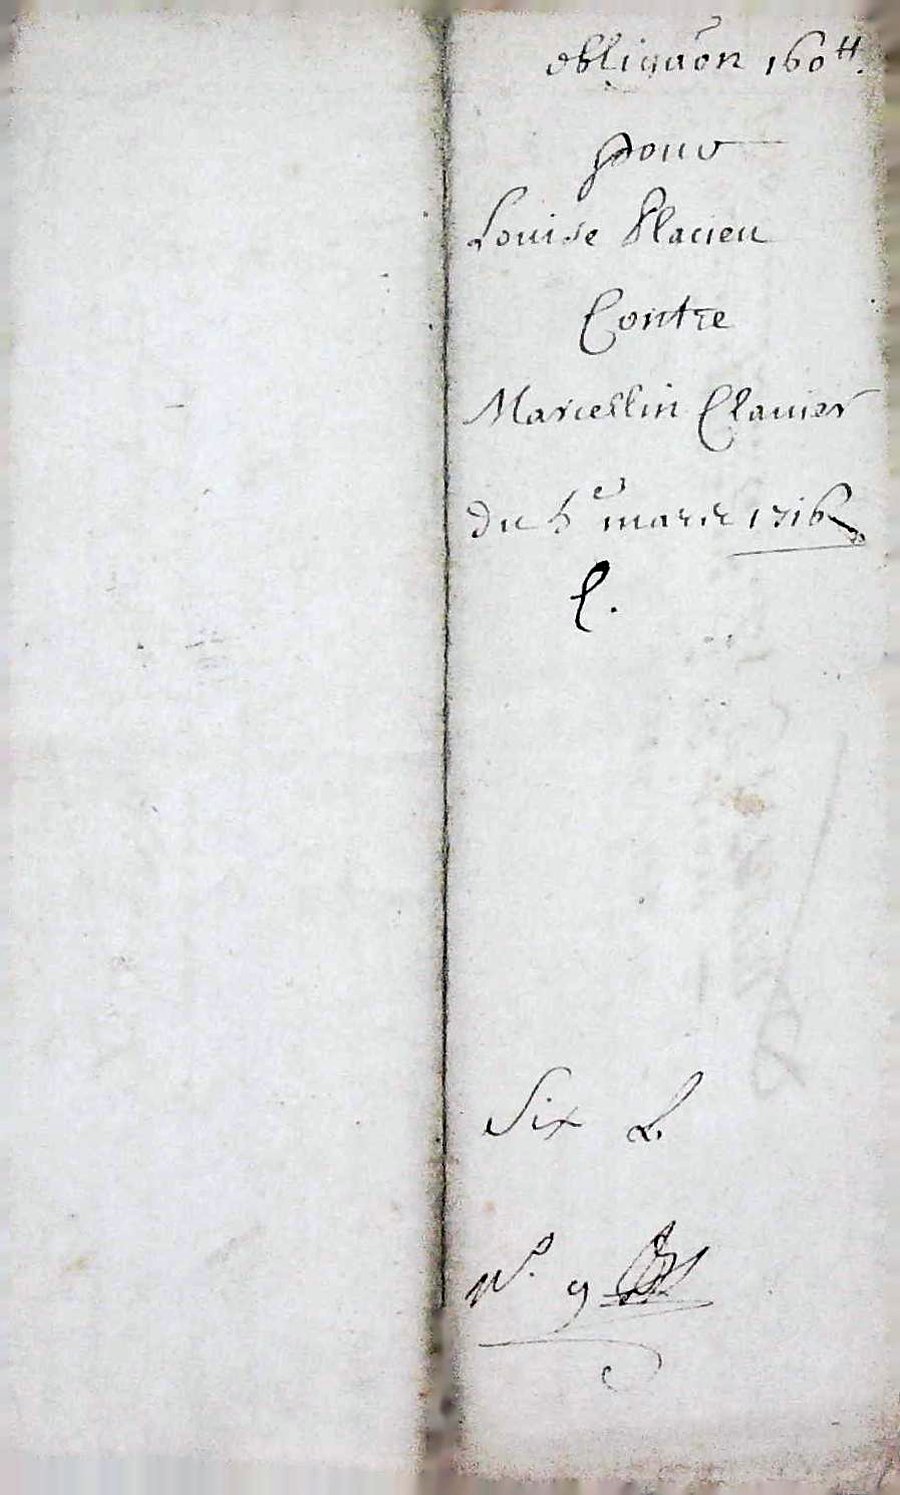 obligãon 160 ₶.
pour
Louise Placieu
Contre
Marcellin Clavier
du 5e mars 1716
C.
Six L.
N°. 9